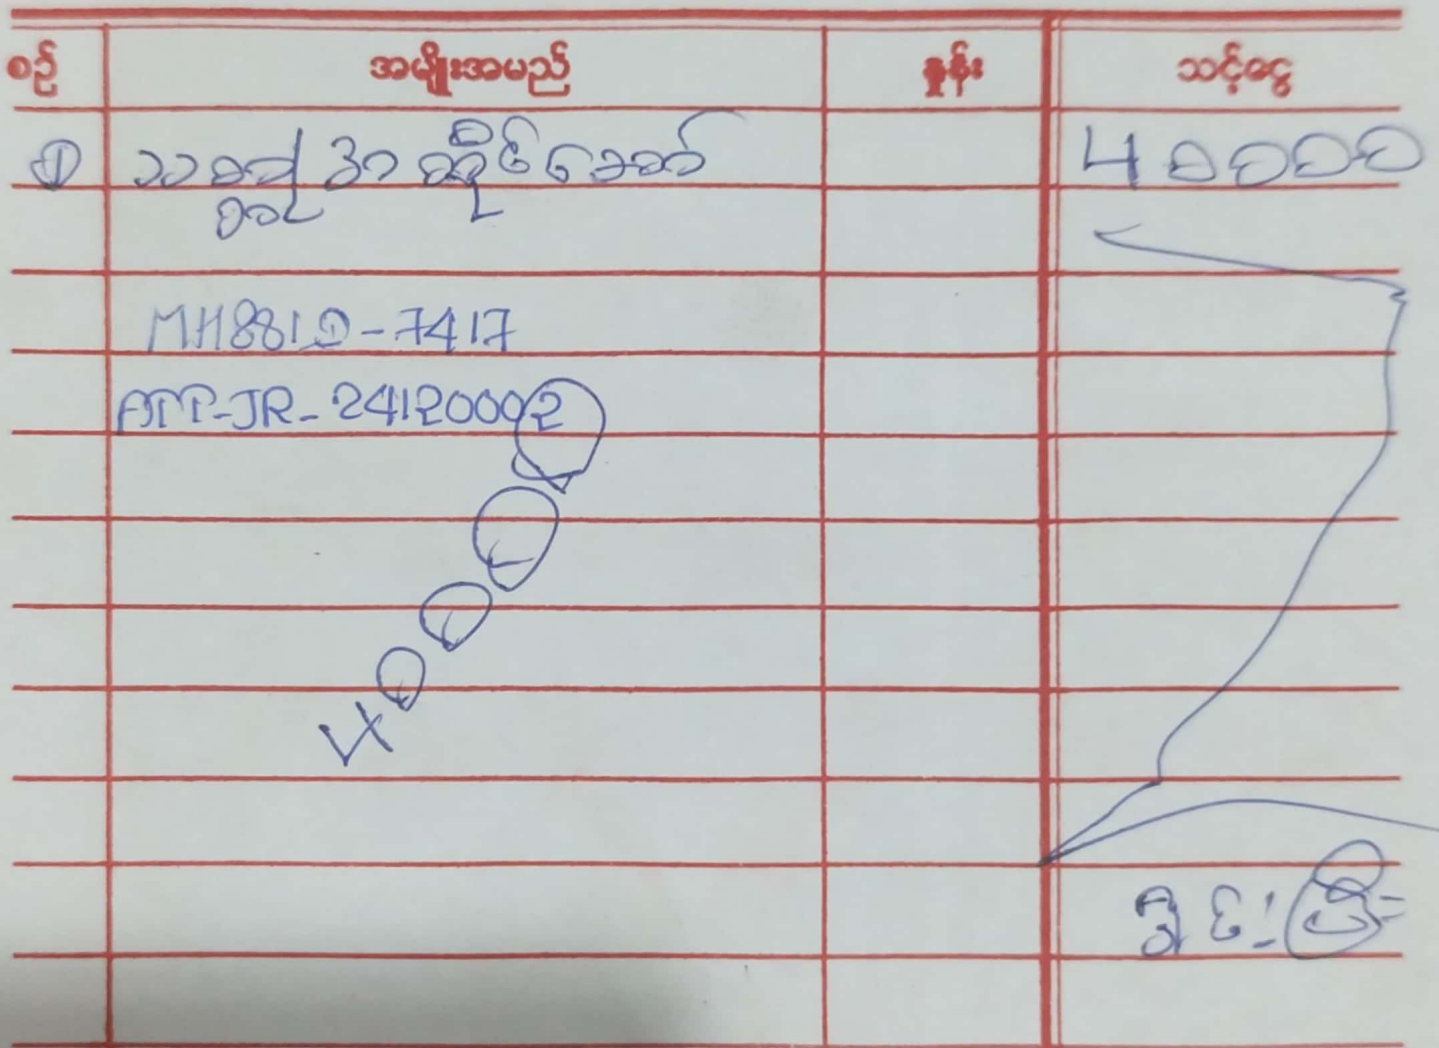 စဉ် အမျိုးအမည် နှုန်း သင့်ငွေ
၁ 40000
MH881D-7417
ATT-JR-24120002
40000
ရှင်းပြီး